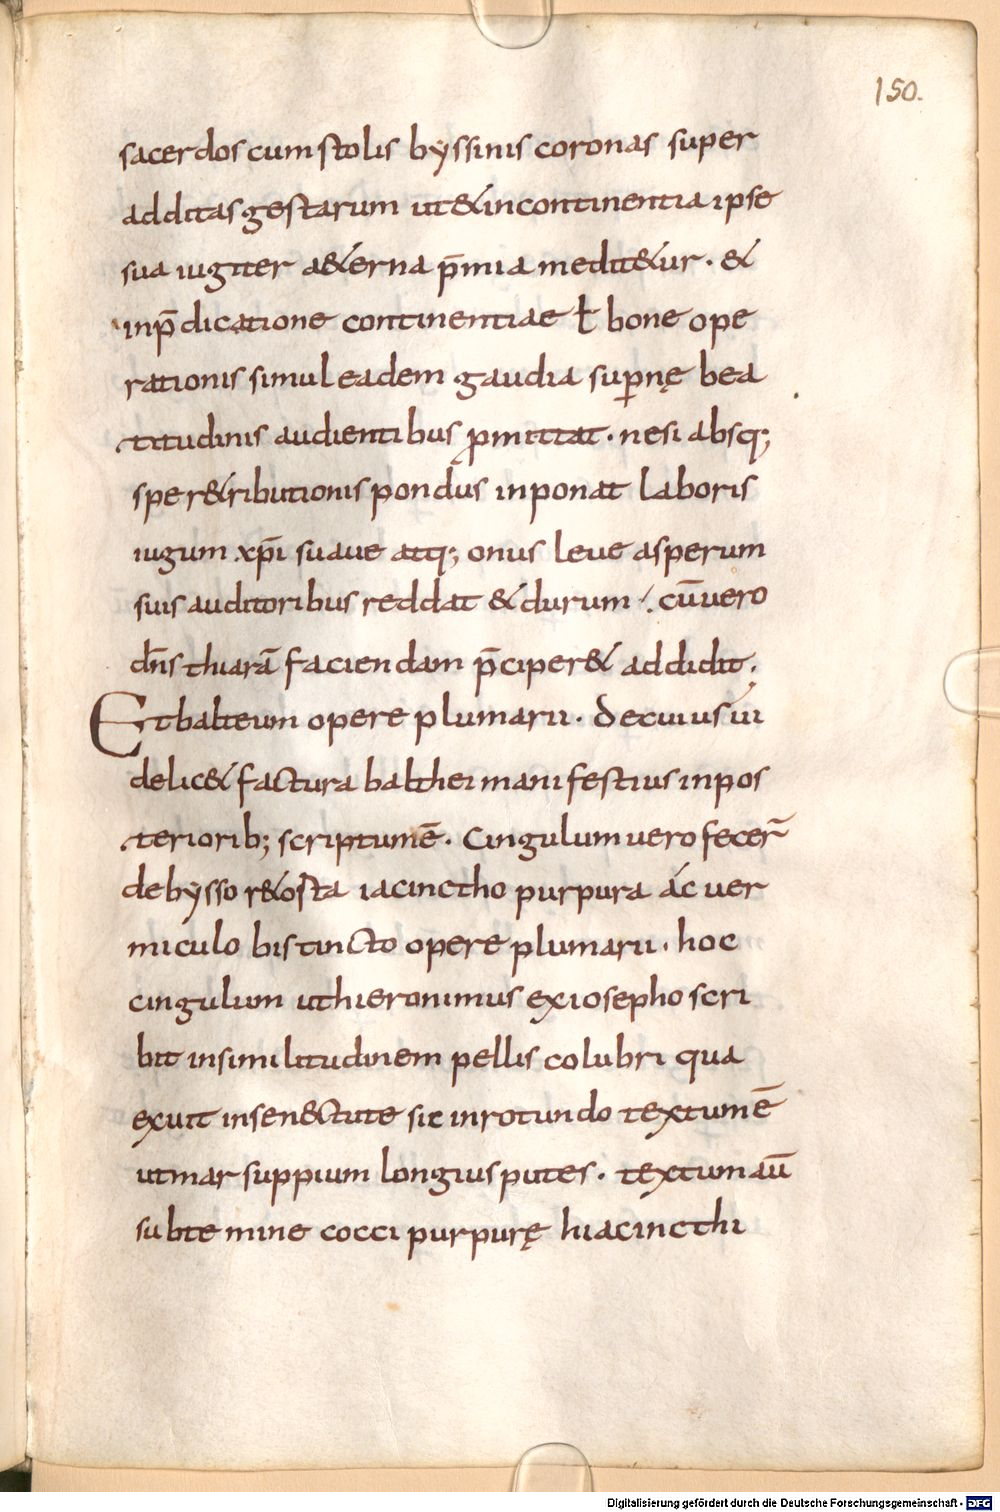 150.
sacerdos cum stolis byssinis coronas super
additas gestarum ut & incontinentia ipse
sua iugiter a&erna p̄mia medit&ur · &
inp̄dicatione continentiae ł bone ope
rationis simul eadem gaudia sup̱nę bea
titudinis audientibus ꝓmittat · nesi absq;
sper&ributionis pondus inponat laboris
iugum xp̄i suaue atq; onus leue asperum
suis auditoribus reddat & durum /. cū uero
dn̄s thiarā faciendam p̄ciper& addidit;
Et balteum opere plumarii · de cuius ui
delic& factura balthei manifestius inpos
teriorib; scriptum ē · Cingulum uero fecer̄
de bysso r&osta iacinctho purpura ac uer
miculo bistincto opere plumarii · hoc
cingulum ut hieronimus ex iosepho scri
bit insimilitudinem pellis colubri qua
exuit insen&ctute sic inrotundo textum ē
ut marsuppium longius putes · textum aū
subtemine cocci purpurę hiacincthi
Digitalisierung gefördert durch die Deutsche Forschungsgemeinschaft - DFG